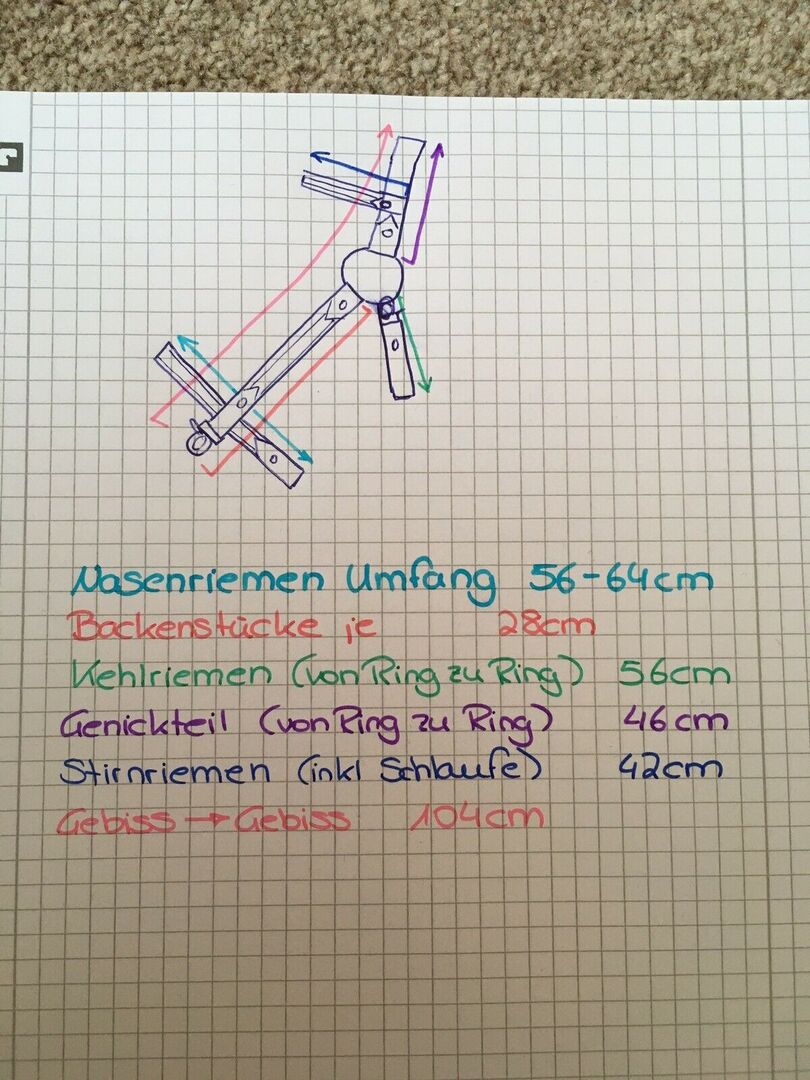 Nasenriemen Umfang 56-64cm
Backenstücke je 28cm
Kehlriemen (von Ring zu Ring) 56cm
Genickteil (von Ring zu Ring) 46cm
Stirnriemen (inkl Schlaufe) 42cm
Gebiss → Gebiss 104cm